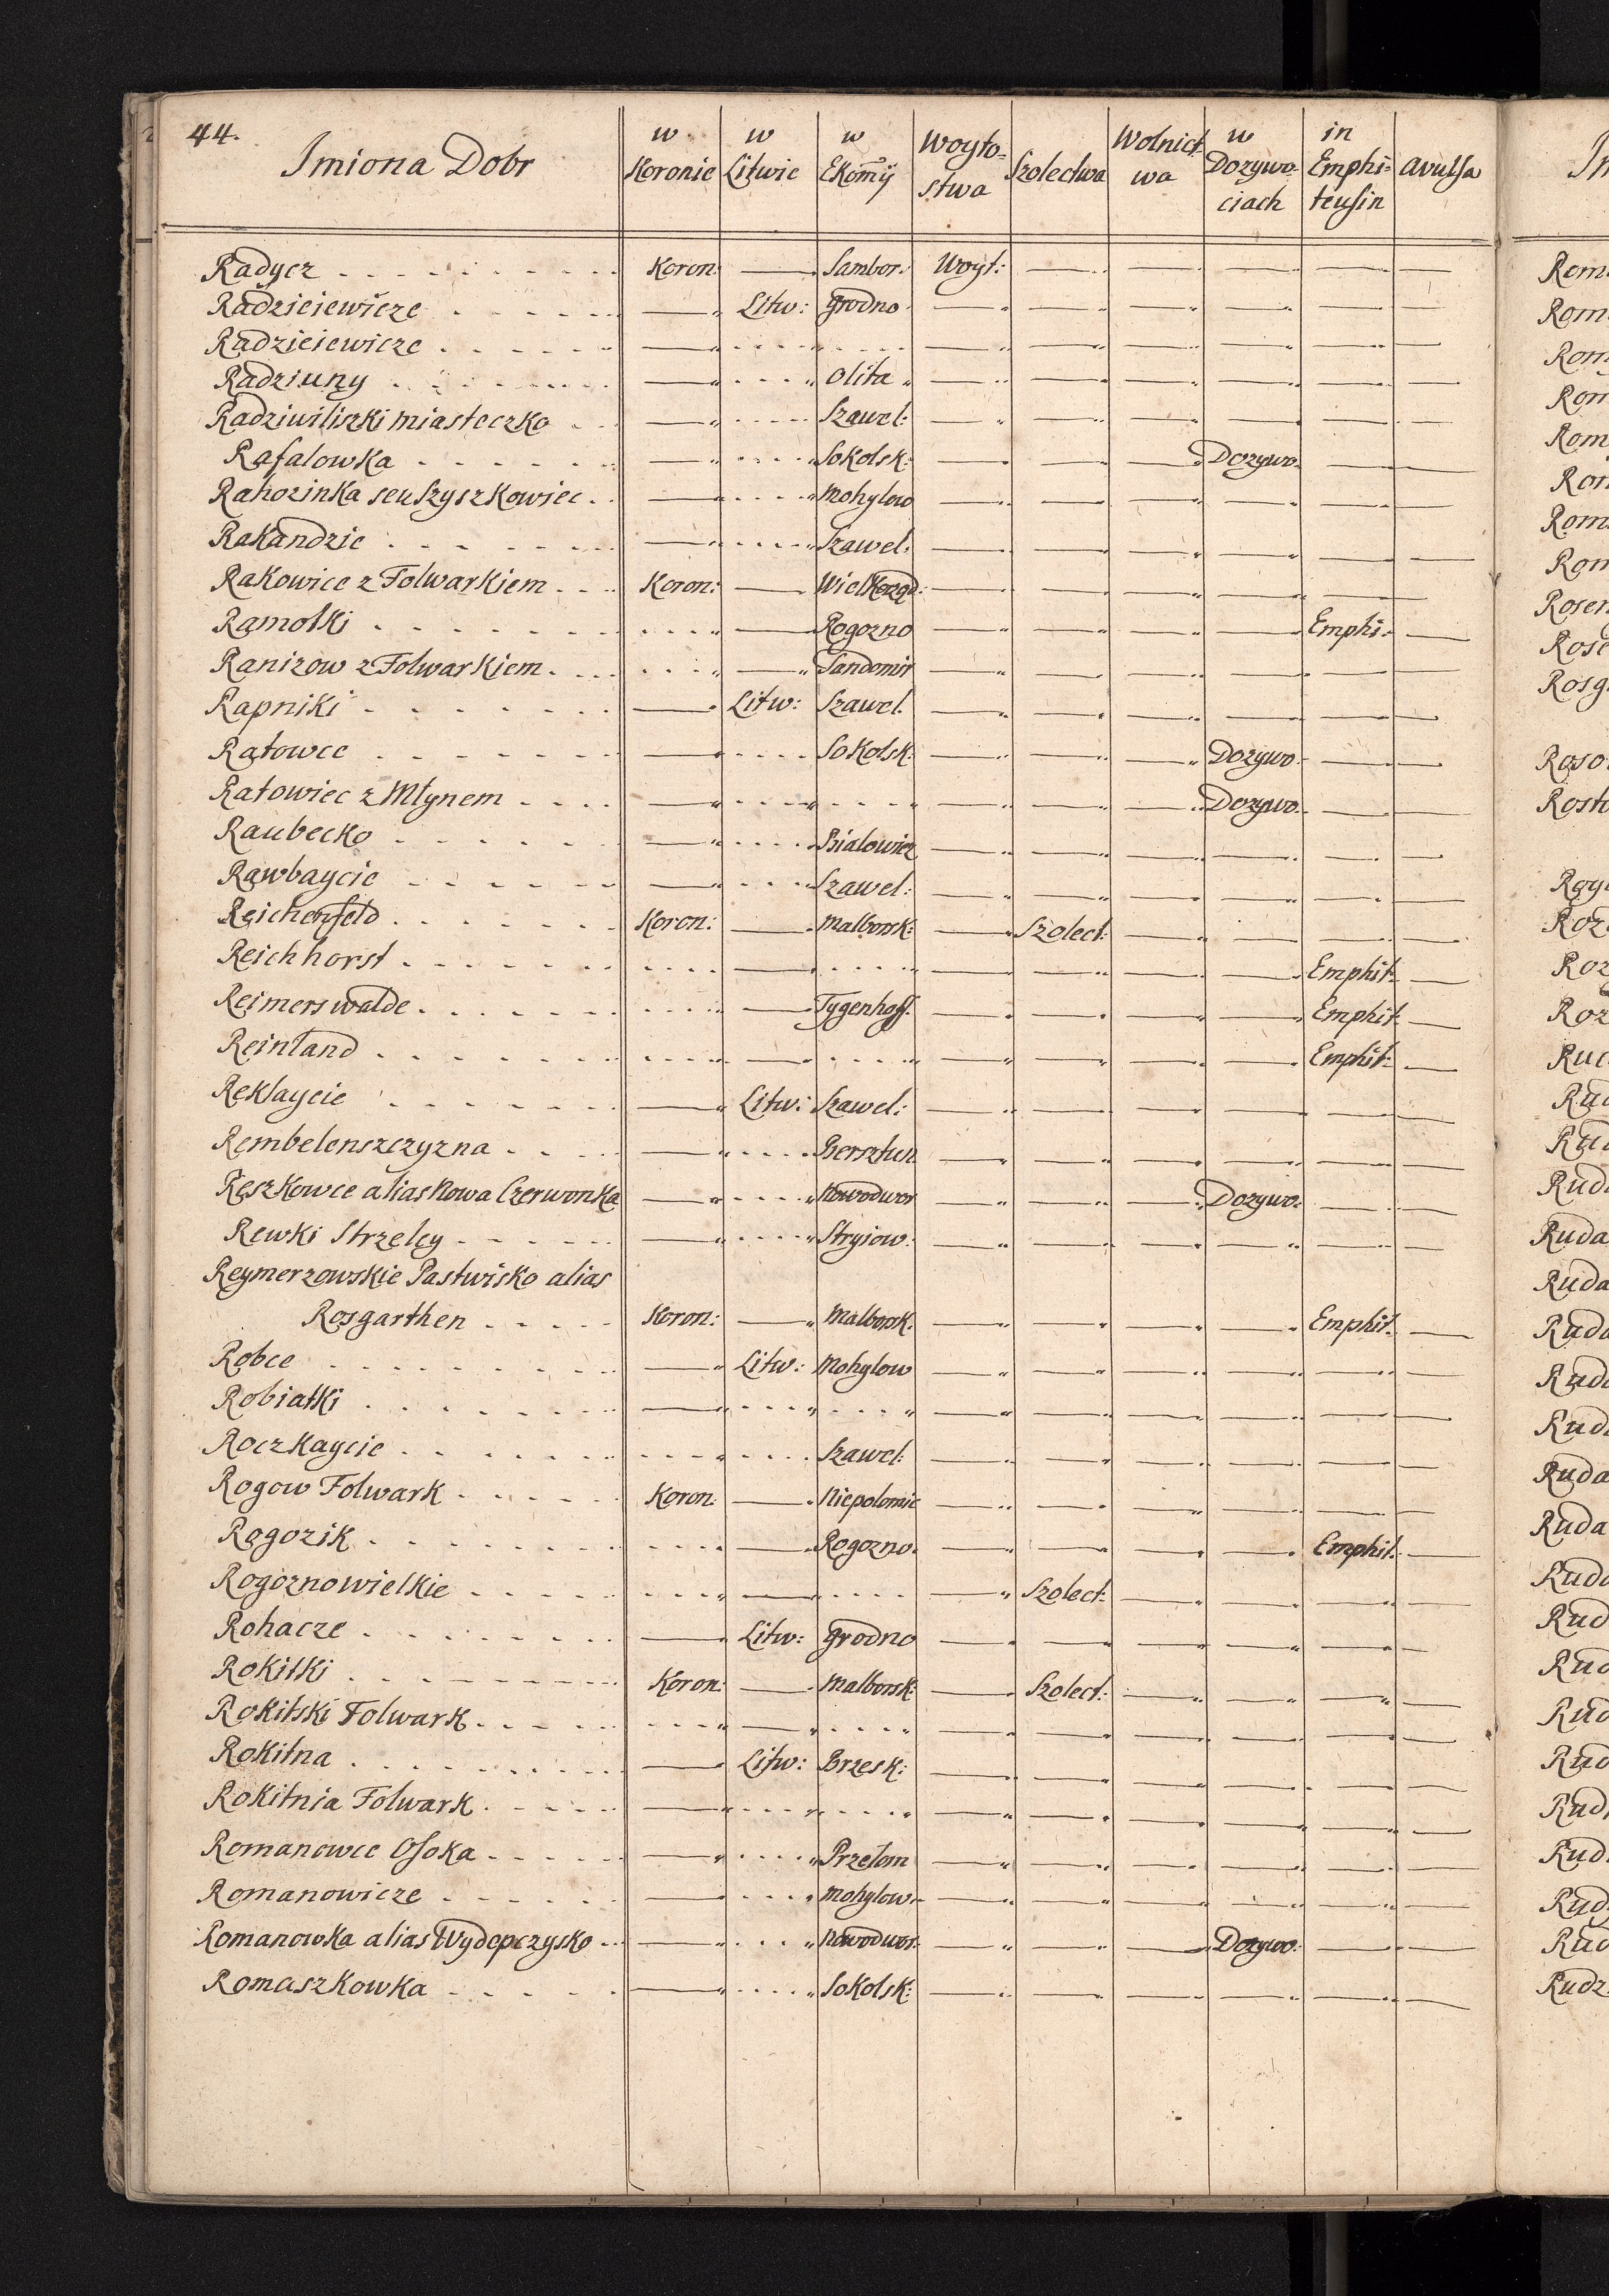 44.
Imiona Dobr | w Koronie | w Litwie | w Ekomij | Woyto=stwa | Szolectwa | Wolnict wa | w Dozywo=ciach | in Emphi=teusin | Avulsa
Radycz | Koron: | — | Sambor: | Woyt: | — | — | — | — | —
Radzieiewicze | — | Litw: | Grodno | — | — | — | — | — | —
Radzieiewicze | — | . . . . | . . . . | — | — | — | — | — | —
Radziuny | — | . . . . | Olita | — | — | — | — | — | —
Radziwiliszki miasteczko | — | . . . . | Szawel: | — | — | — | — | — | —
Rafalowka | — | . . . . | Sokolsk: | — | — | — | Dozywo. | — | —
Rahozinka seu Szyszkowiec | — | . . . . | Mohylow | — | — | — | — | — | —
Rakandzie | — | . . . . | Szawel: | — | — | — | — | — | —
Rakowice z Folwarkiem | Koron: | — | Wielkorząd: | — | — | — | — | — | —
Ramotki | . . . . | — | Rogozno | — | — | — | — | Emphi: | —
Ranizow z Folwarkiem | . . . . | — | Sandomir | — | — | — | — | — | —
Rapniki | — | Litw: | Szawel. | — | — | — | — | — | —
Ratowce | — | . . . . | Sokolsk: | — | — | — | Dozywo. | — | —
Ratowiec z Młynem | — | . . . . | . . . . | — | — | — | Dozywo. | — | —
Raubecko | — | . . . . | Bialowiez | — | — | — | — | — | —
Rawbaycie | — | . . . . | Szawel: | — | — | — | — | — | —
Reichenfeld | Koron: | — | Malborsk: | — | Szolect: | — | — | — | —
Reichhorst | . . . . | — | . . . . | — | — | — | — | Emphit: | —
Reimerswalde | . . . . | — | Tygenhoff. | — | — | — | — | Emphit. | —
Reinland | . . . . | — | . . . . | — | — | — | — | Emphit: | —
Reklaycie | — | Litw: | Szawel: | — | — | — | — | — | —
Rembelenszczyzna | — | . . . . | Bersztun | — | — | — | — | — | —
Reszkowce alias Nowa Czerwonka | — | . . . . | Nowodwor | — | — | — | Dozywo. | — | —
Rewki Strzelcy | — | . . . . | Stryiow: | — | — | — | — | — | —
Reymerzowskie Pastwisko alias
Rosgarthen | Koron: | — | Malborsk. | — | — | — | — | Emphit. | —
Robce | — | Litw: | Mohylow | — | — | — | — | — | —
Robiatki | — | . . . . | . . . . | — | — | — | — | — | —
Roczkaycie | . . . . | . . . . | Szawel: | — | — | — | — | — | —
Rogow Folwark | Koron: | — | Niepolomic | — | — | — | — | — | —
Rogozik | . . . . | — | Rogozno. | — | — | — | — | Emphit. | —
Rogozno wielkie | . . . . | — | . . . . | — | Szolect: | — | — | — | —
Rohacze | — | Litw: | Grodno | — | — | — | — | — | —
Rokitki | Koron: | — | Malborsk: | — | Szolect: | — | — | — | —
Rokitski Folwark | . . . . | — | . . . . | — | — | — | — | — | —
Rokitna | — | Litw: | Brzesk: | — | — | — | — | — | —
Rokitnia Folwark | — | . . . . | . . . . | — | — | — | — | — | —
Romanowce Osoka | — | . . . . | Przełom | — | — | — | — | — | —
Romanowicze | — | . . . . | Mohylow. | — | — | — | — | — | —
Romanowka alias | — | . . . . | Nowodwor. | — | — | — | Dozywo: | — | —
Romaszkowka | — | . . . . | Sokolsk: | — | — | — | — | — | —